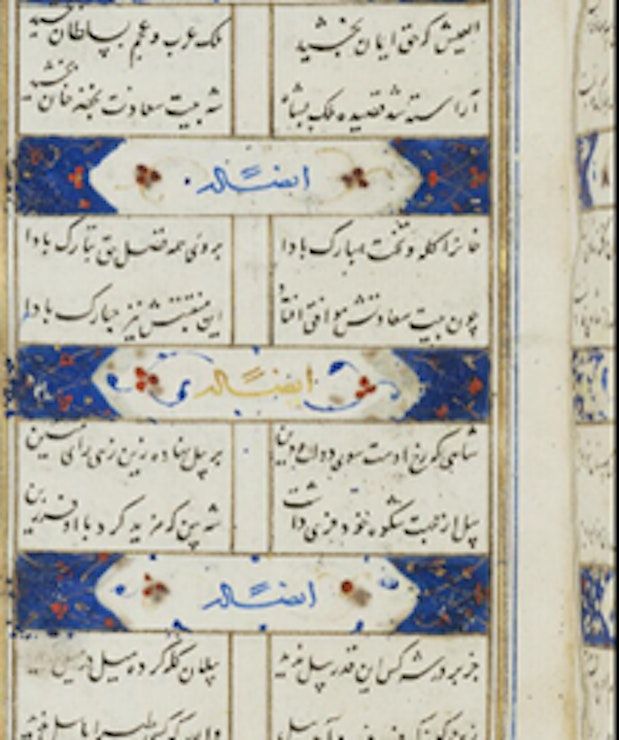 العیش که حق ایمان بخشید ملک عرب و عجم بسلطان بخشید
آراسته شد قصیده ملک بشاه شه بیت سعادت خان بخشید
ایضاً له
خانرا کله و تخت مبارک بادا بر وی همه فضل حق تبارک بادا
چون بیت سعادتش موافق افتاد این منقبتش نیز مبارک بادا
ایضاً له
شاهی که رخ اوست سوی و دین بر پیل نهاده زین زهی رای متین
پیل از جهت شکوه خود فرزی داشت شه بین که مزید کرد با او فرزین
ایضاً له
جز بر در شه کس این قدر پیل ندید پیلان کرده میل در میل